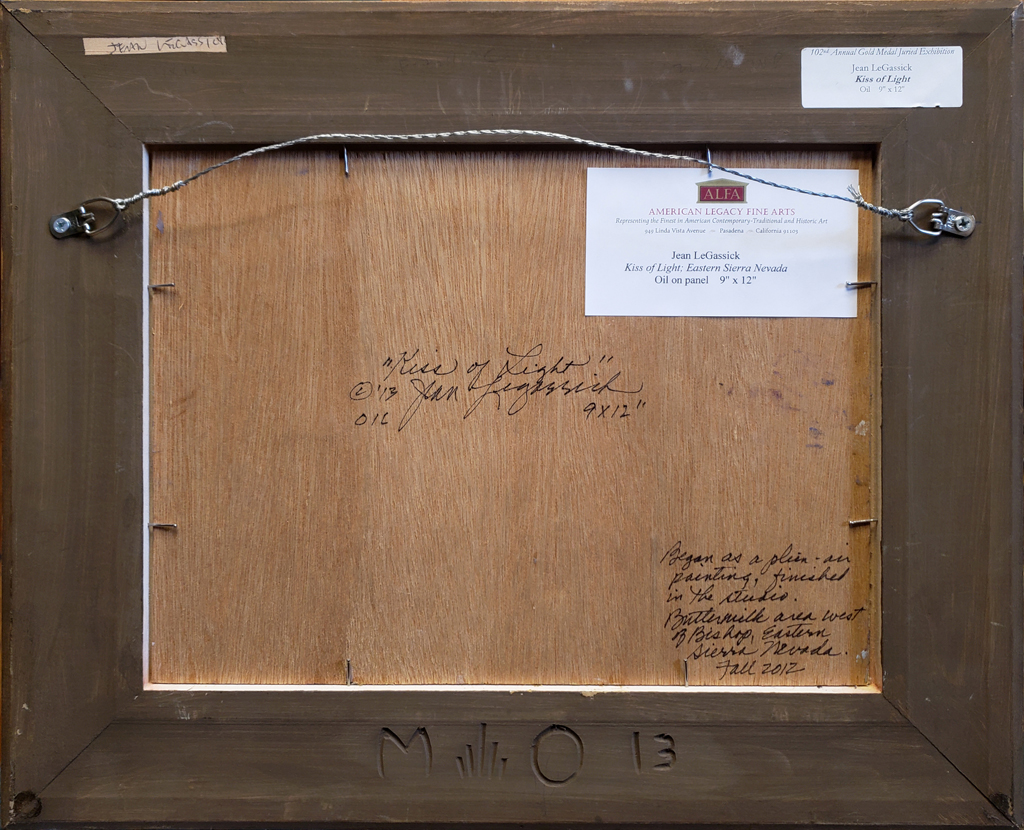 JEAN LEGASSICK
102nd Annual Gold Medal Juried Exhibition
Jean LeGassick
Kiss of Light
Oil 9" x 12"
ALFA
AMERICAN LEGACY FINE ARTS
Representing the Finest in American Contemporary-Traditional and Historic Art
949 Linda Vista Avenue ~ Pasadena ~ California 91103
Jean LeGassick
Kiss of Light; Eastern Sierra Nevada
Oil on panel 9" x 12"
"Kiss of Light"
© '13 Jean Legassick
OIL 9x12"
Began as a plein-air
painting, finished
in the studio.
Buttermilk area west
of Bishop, Eastern
Sierra Nevada.
Fall 2012
M O 13